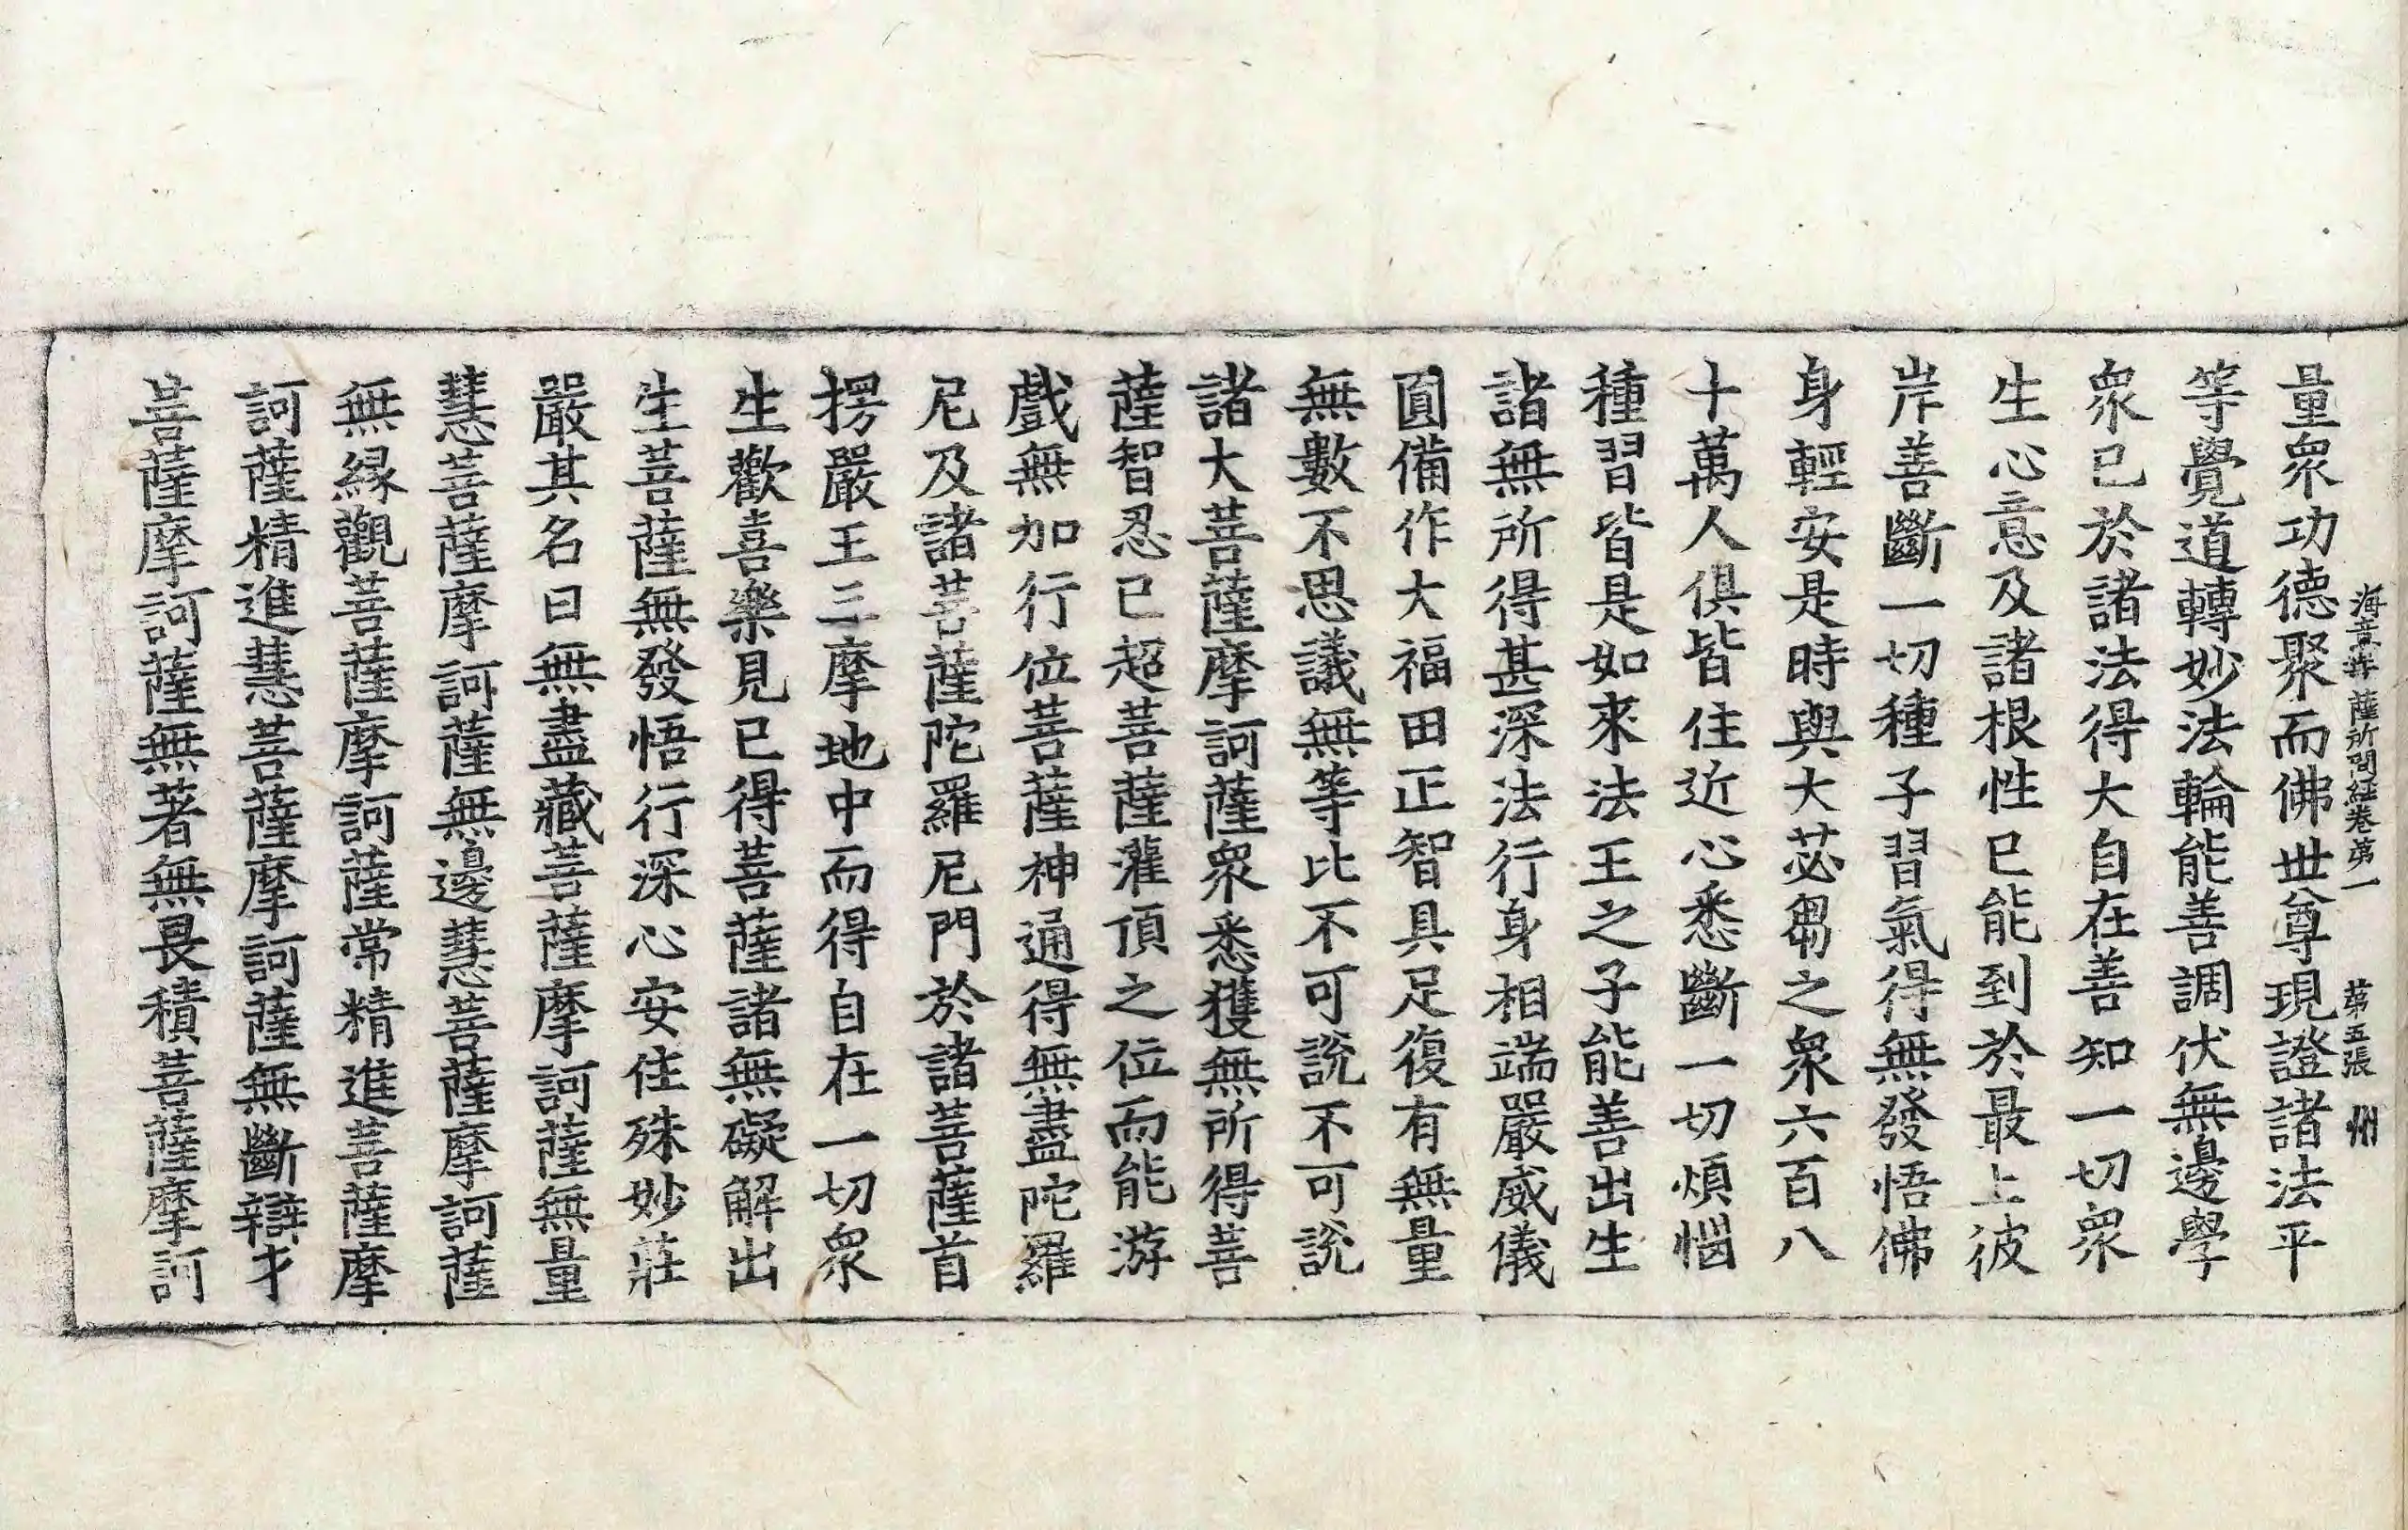 海意菩薩所問經卷第一 第五張 州
量衆功德聚而佛世尊現證諸法平
等覺道轉妙法輪能善調伏無邊學
衆已於諸法得大自在善知一切衆
生心意及諸根性已能到於最上彼
岸善斷一切種子習氣得無發悟佛
身輕安是時與大苾芻之衆六百八
十萬人俱皆住近心悉斷一切煩惱
種習皆是如來法王之子能善出生
諸無所得甚深法行身相端嚴威儀
圓備作大福田正智具足復有無量
無數不思議無等比不可說不可說
諸大菩薩摩訶薩衆悉獲無所得菩
薩智忍已超菩薩灌頂之位而能游
戲無加行位菩薩神通得無盡陀羅
尼及諸菩薩陀羅尼門於諸菩薩首
楞嚴王三摩地中而得自在一切衆
生歡喜樂見已得菩薩諸無礙解出
生菩薩無發悟行深心安住殊妙莊
嚴其名曰無盡藏菩薩摩訶薩無量
慧菩薩摩訶薩無邊慧菩薩摩訶薩
無緣觀菩薩摩訶薩常精進菩薩摩
訶薩精進慧菩薩摩訶薩無斷辯才
菩薩摩訶薩無著無畏積菩薩摩訶